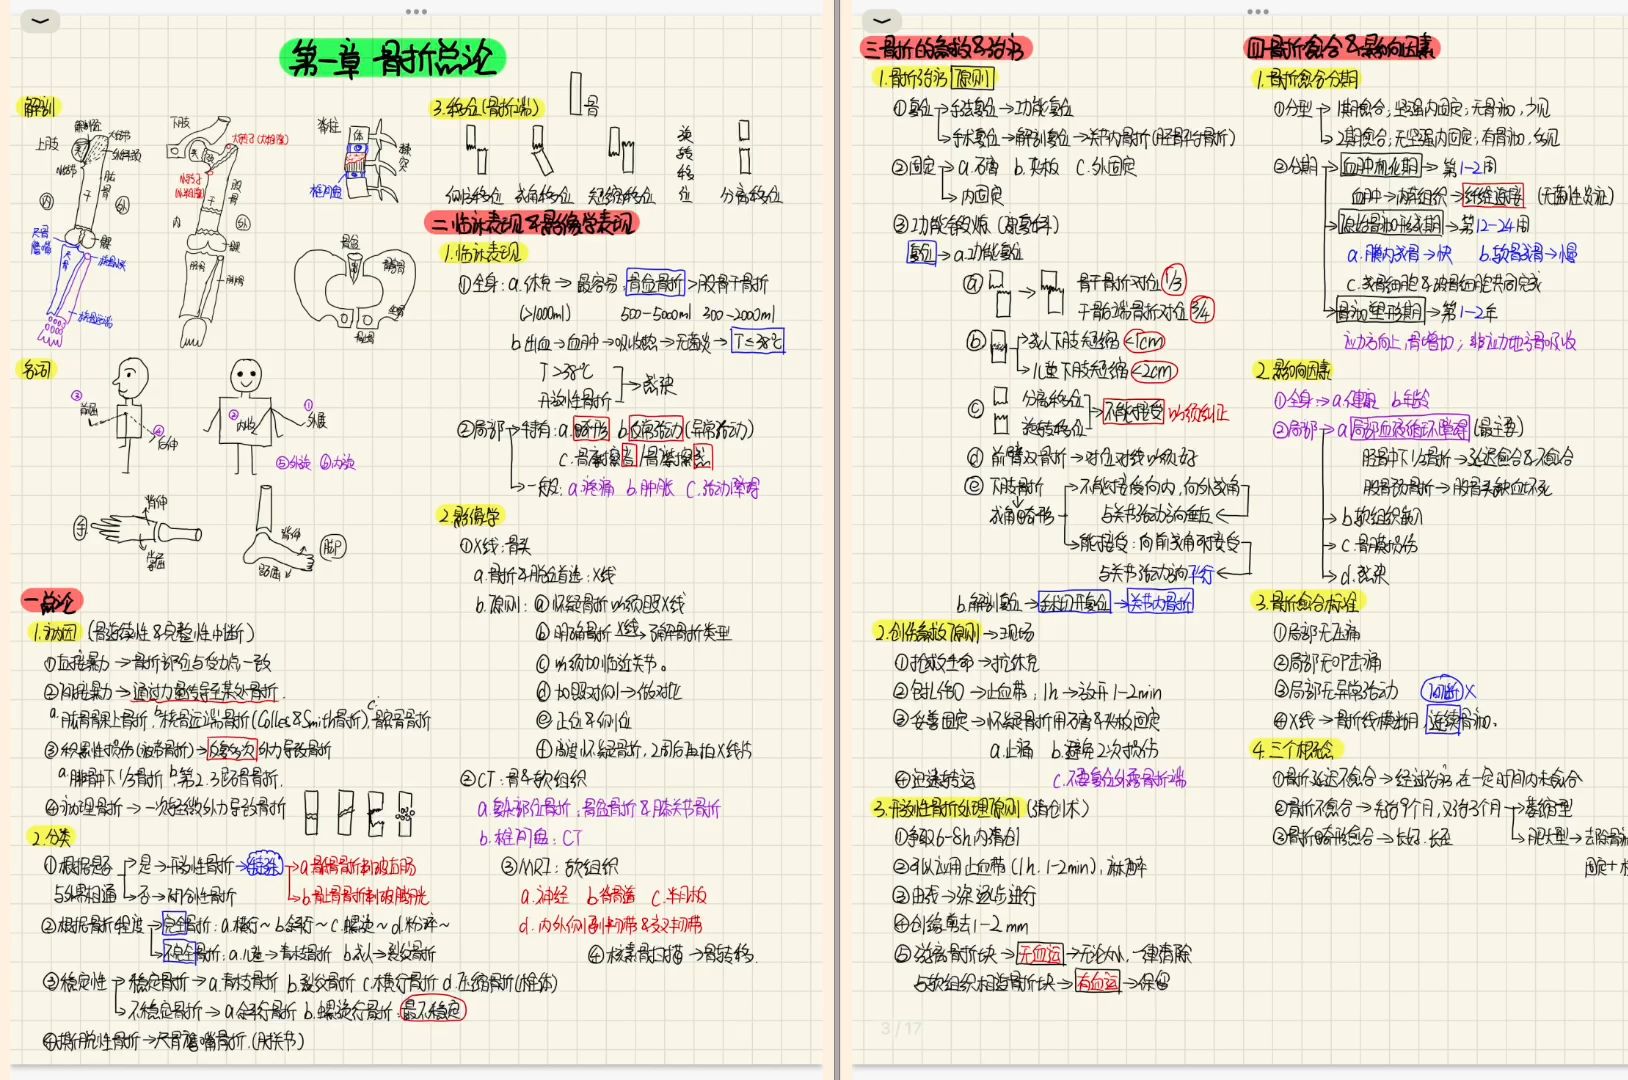 第一章 骨折总论
解剖
上肢
大结节
小结节
干
内
外
下肢
内
外
脊柱
体
椎间盘
骨盆
名词
③
前屈
④
后伸
②
内收
①
外展
⑤外旋 ⑥内旋
手
背伸
掌屈
背伸
跖屈
脚
一总论
1.动因(骨连续性&完整性中断)
①直接暴力→骨折部位与受力点一致
②间接暴力→通过力量传导至某处骨折.
a.肱骨髁上骨折. b.桡骨远端骨折(Colles&Smith骨折). c.髌骨骨折
③积累性损伤(疲劳骨折)→反复多次外力导致骨折
a.腓骨下1/3骨折. b.第2.3跖骨骨折.
④病理骨折→一次轻微外力导致骨折
2.分类
①根据是否与外界相通
是→开放性骨折→特殊→a.骶尾骨骨折刺破直肠
b.耻骨骨折刺破膀胱
否→闭合性骨折
②根据骨折程度→完全骨折:a.横行~ b.斜行~ c.螺旋~ d.粉碎~
不完全骨折:a.儿童→青枝骨折 b.成人→裂纹骨折
③稳定性→稳定骨折→a.青枝骨折 b.裂纹骨折 c.横行骨折 d.压缩骨折(椎体)
不稳定骨折→a.斜行骨折 b.螺旋行骨折:最不稳定
④撕脱性骨折→尺骨鹰嘴骨折.(肘关节)
3.移位(骨折端)
骨
侧方移位 成角移位 短缩移位 旋转移位 分离移位
二.临床表现&影像学表现
1.临床表现
①全身:a.休克→最容易:骨盆骨折>股骨干骨折
(>1000ml) 500-5000ml 300-2000ml
b.出血→血肿→吸收热→无菌炎→T≤38℃
T>38℃
开放性骨折→感染
②局部→特有:a.畸形 b.反常活动(异常活动)
c.骨摩擦音/骨摩擦感
一般:a.疼痛 b.肿胀 c.活动障碍
2.影像学
①X线:骨头
a.骨折&脱位首选:X线
b.原则:ⓐ怀疑骨折必须照X线
ⓑ明确骨折X线→了解骨折类型
ⓒ必须加临近关节。
ⓓ加照对侧→做对比
ⓔ正位&侧位
ⓕ高度怀疑骨折,2周后再拍X线片
②CT:骨&软组织
a.复杂部位骨折:骨盆骨折&膝关节骨折
b.椎间盘:CT
③MRI:软组织
a.神经 b.脊髓 c.半月板
d.内外侧副韧带&交叉韧带
④核素骨扫描→骨转移.
三骨折的急救&治疗
1.骨折治疗原则
①复位→手法复位→功能复位
手术复位→解剖复位→关节内骨折(胫腓骨骨折)
②固定→a.石膏 b.夹板 c.外固定
内固定
③功能锻炼(康复科)
复位→a.功能复位
ⓐ 骨干骨折对位1/3
干骺端骨折对位3/4
ⓑ 成人下肢短缩<1cm
儿童下肢短缩<2cm
ⓒ 分离移位
旋转移位→不能接受必须纠正
ⓓ 前臂双骨折→对位对线必须好
ⓔ 下肢骨折→不能接受向内,向外成角
成角畸形 与关节活动方向垂直
能接受:向前成角可接受
与关节活动方向平行
b.解剖复位→手术切开复位→关节内骨折
2.创伤急救原则→现场
①抢救生命→抗休克
②包扎伤口→止血带:1h→放开1-2min
③妥善固定→怀疑骨折用石膏&夹板固定
a.止痛 b.避免2次损伤
④迅速转运 c.不要复位外露骨折端
3.开放性骨折处理原则(清创术)
①争取6-8h内清创
②可以应用止血带(1h.1-2min),麻醉
③由浅→深逐步进行
④创缘剪去1-2mm
⑤游离骨折块→无血运→无论大小,一律清除
与软组织相连骨折块→有血运→保留
3 / 17
四骨折愈合&影响因素
1.骨折愈合分期
①分型→1期愈合:坚强内固定;无骨痂,少见
2期愈合:无坚强内固定;有骨痂,多见
②分期→血肿机化期→第1-2周
血肿→肉芽组织→纤维连接(无菌性炎症)
原始骨痂形成期→第12-24周
a.膜内成骨→快 b.软骨成骨→慢
c.成骨细胞&破骨细胞共同完成
骨痂塑形期→第1-2年
应力方向上,骨增加;非应力地方骨吸收
2.影响因素
①全身→a.健康 b.年龄
②局部→a.局部血液循环障碍(最主要)
胫骨中下1/3骨折→延迟愈合&不愈合
股骨颈骨折→股骨头缺血坏死
b.软组织嵌入
c.骨膜损伤
d.感染
3.骨折愈合标准
①局部无压痛
②局部无叩击痛
③局部无异常活动 间断X
④X线→骨折线模糊,连续骨痂.
4.三个概念
①骨折延迟愈合→经过治疗,在一定时间内未愈合
②骨折不愈合→先治9个月,又治3个月→萎缩型
肥大型→去除骨痂
固定+
③骨折畸形愈合→长歪.长短